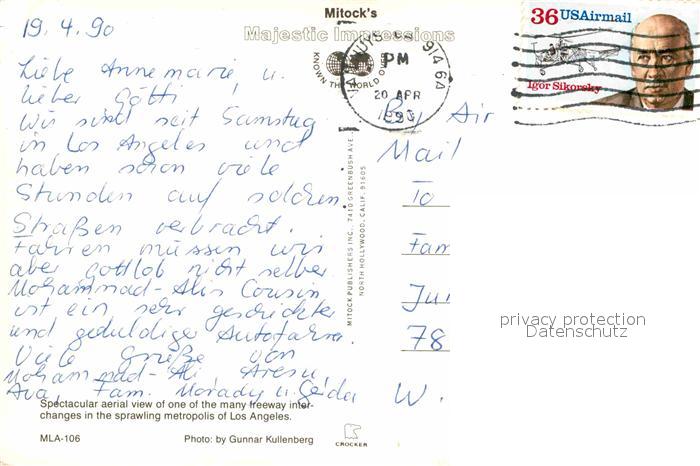 Mitock's
Majestic Impressions
KNOWN THE WORLD OVER
VAN NUYS CA 914 64
PM
20 APR
1990
36 USAirmail
Igor Sikorsky
19.4.90
Liebe Annemarie u.
lieber Götti!
Wir sind seit Samstag
in Los Angeles und
haben schon viele
Stunden auf solchen
Straßen verbracht.
Fahren müssen wir
aber gottlob nicht selber
Mohammad-Alis Cousin
ist ein sehr geschickter
und geduldiger Autofahrer
Viele Grüße von
Mohammad-Ali Arezu,
Ava, Fam. Morady u.
By Air
Mail
To
Fam
78
W.
MITOCK PUBLISHERS INC., 7410 GREENBUSH AVE.,
NORTH HOLLYWOOD, CALIF. 91605
privacy protection
Datenschutz
Spectacular aerial view of one of the many freeway inter-
changes in the sprawling metropolis of Los Angeles.
MLA-106
Photo: by Gunnar Kullenberg
CROCKER